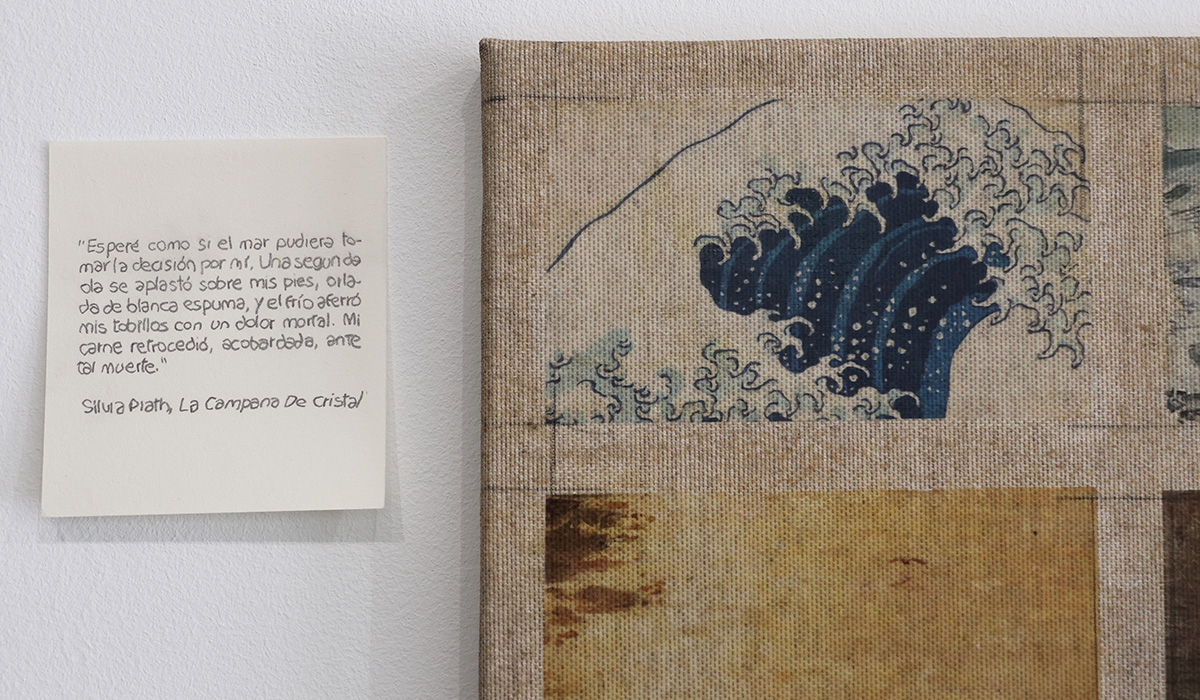 "Esperé como si el mar pudiera to-
mar la decisión por mí, Una segunda
ola se aplastó sobre mis pies, orla-
da de blanca espuma, y el frío aferró
mis tobillos con un dolor mortal. Mi
carne retrocedió, acobardada, ante
tal muerte."
Silvia Plath, La Campana De Cristal